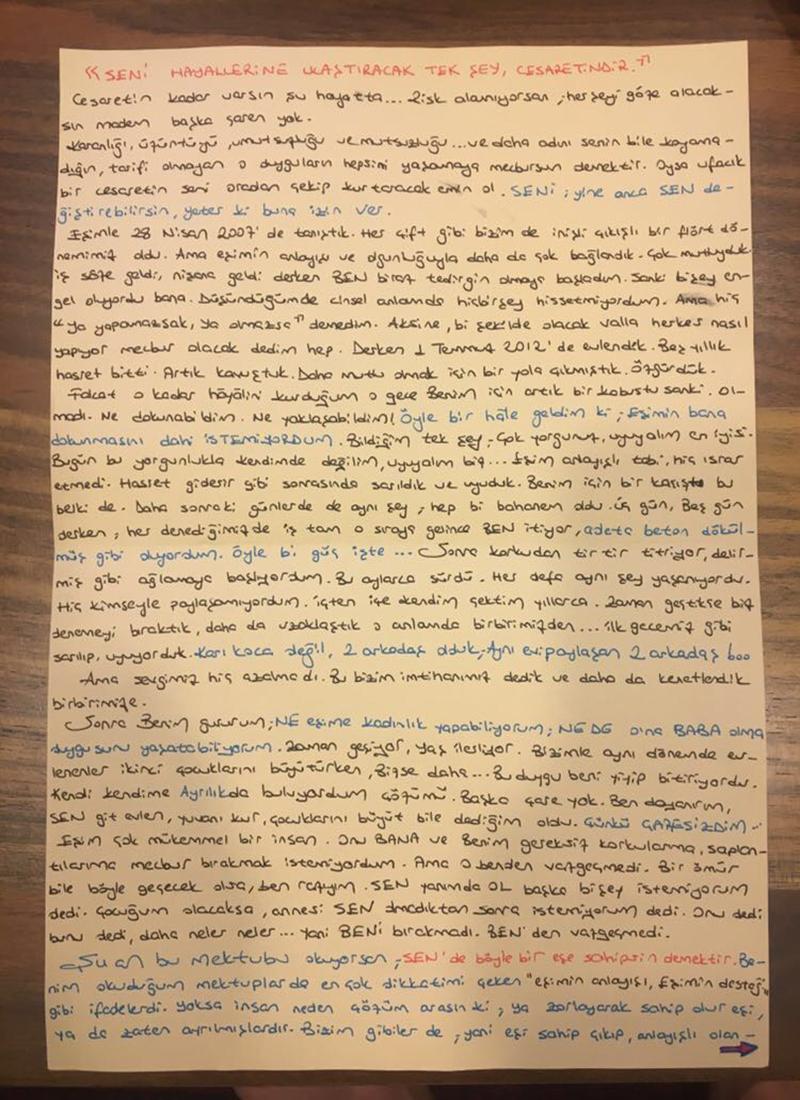 “SENİ HAYALLERİNE ULAŞTIRACAK TEK ŞEY, CESARETİNDİR.”
Cesaretin kadar varsın şu hayatta... Risk alamıyorsan, herşeyi göze alacak-
sın madem başka çaren yok.
Karanlığı, üzüntüyü, umutsuzluğu ve mutsuzluğu... ve daha adını senin bile koyama-
dığın, tarifi olmayan o duyguların hepsini yaşamaya mecbursun demektir. Oysa ufacık
bir cesaretin seni oradan çekip kurtaracak emin ol. SENİ; yine anca SEN de-
ğiştirebilirsin, yeter ki buna izin ver.
Eşimle 28 Nisan 2007'de tanıştık. Her çift gibi bizim de inişli çıkışlı bir flört dö-
nemimiz oldu. Ama eşimin anlayışı ve olgunluğuyla daha da çok bağlandık. Çok mutluyduk
iş söze geldi, nişana geldi derken BEN biraz tedirgin olmaya başladım. Sanki bişey en-
gel oluyordu bana. Düşündüğümde cinsel anlamda hiçbirşey hissetmiyordum. Ama hiç
“ya yapamazsak, ya olmazsa” demedim. Aksine, bi şekilde olacak valla herkes nasıl
yapıyor mecbur olacak dedim hep. Derken 1 Temmuz 2012'de evlendik. Beş yıllık
hasret bitti. Artık kavuştuk. Daha mutlu olmak için bir yola çıkmıştık. Özgürdük.
Fakat o kadar hâyâlini kurduğum o gece Benim için artık bir kabustu sanki. Ol-
madı. Ne dokunabildim. Ne yaklaşabildim! Öyle bir hâle geldim ki; Eşimin bana
dokunmasını dahi İSTEMİYORDUM. Bildiğim tek şey; Çok yorgunuz, uyuyalım en iyisi.
Bugün bu yorgunlukla kendimde değilim, uyuyalım biz... Eşim anlayışlı tabi, hiç ısrar
etmedi. Hasret giderir gibi sonrasında sarıldık ve uyuduk. Benim için bir kaçıştı bu
belki de. Daha sonraki günlerde de aynı şey, hep bi bahanem oldu. Üç gün, Beş gün
derken; her denediğimizde iş tam o sıraya gelince BEN itiyor, adeta beton dökül-
müş gibi oluyordum. Öyle bi güç işte... Sonra korkudan tir tir titriyor, delir-
miş gibi ağlamaya başlıyordum. Bu aylarca sürdü. Her defa aynı şey yaşanıyordu.
Hiç kimseyle paylaşamıyordum. İçten içe kendim çektim yıllarca. Zaman geçtikçe biz
denemeyi bıraktık, daha da uzaklaştık o anlamda birbirimizden... ilk gecemiz gibi
sarılıp, uyuyorduk. Karı koca değil, 2 arkadaş olduk, Aynı evi paylaşan 2 arkadaş...
Ama sevgimiz hiç azalmadı. Bu bizim imtihanımız dedik ve daha da kenetlendik
birbirimize.
Sonra Benim gururum; NE eşime kadınlık yapabiliyorum; NE DE ona BABA olma
duygusunu yaşatabiliyorum. Zaman geçiyor, yaş ilerliyor. Bizimle aynı dönemde ev-
lenenler ikinci çocuklarını büyütürken, Bizse daha... Bu duygu beni yiyip bitiriyordu.
Kendi kendime Ayrılıkda buluyordum çözümü. Başka çare yok. Ben dayanırım,
SEN git evlen, yuvanı kur, çocuklarını büyüt bile dediğim oldu. Çünkü ÇARESİZDİM..
Eşim çok mükemmel bir insan. Onu BANA ve Benim gereksiz korkularıma, saplan-
tılarıma mecbur bırakmak istemiyordum. Ama O benden vazgeçmedi. Bir ömür
bile böyle geçecek olsa, ben razıyım. SEN yanımda OL başka bişey istemiyorum
dedi. Çocuğum olacaksa, annesi SEN olmadıktan sonra istemiyorum dedi. Onu dedi
bunu dedi, daha neler neler... Yani BENİ bırakmadı. BEN'den vazgeçmedi.
Şu an bu mektubu okuyorsan, SEN'de böyle bir eşe sahipsin demektir. Be-
nim okuduğum mektuplarda en çok dikkatimi çeken “eşimin anlayışı, Eşimin desteği”
gibi ifadelerdi. Yoksa insan neden çözüm arasın ki; ya zorlayarak sahip olur eşi,
ya da zaten ayrılmışlardır. Bizim gibiler de, yani eşi sahip çıkıp, anlayışlı olan-